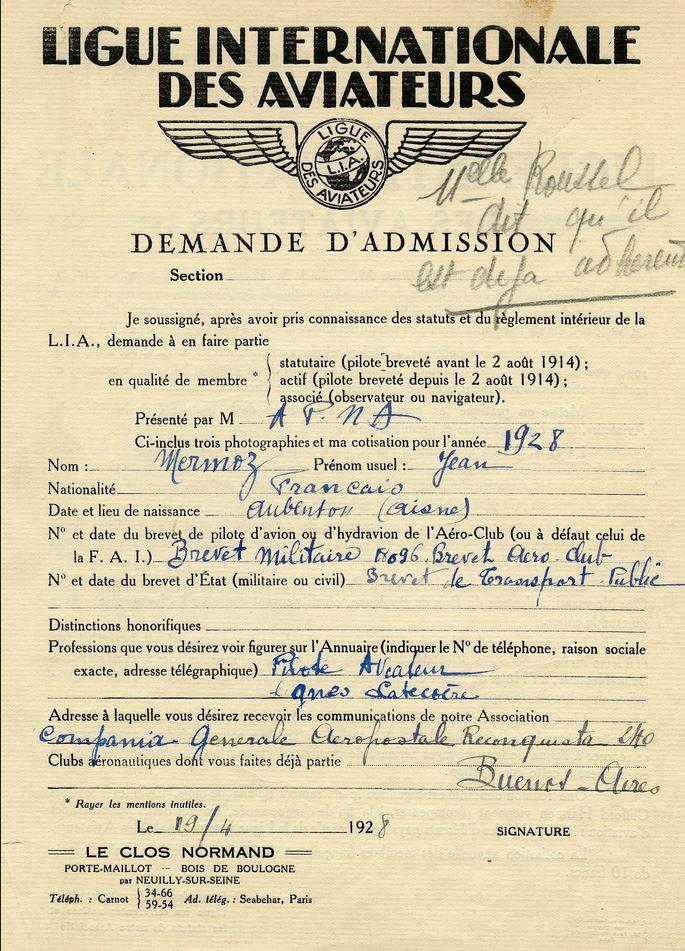 LIGUE INTERNATIONALE
DES AVIATEURS
LIGUE
L.I.A.
DES AVIATEURS
Melle Roussel
dit qu'il
est deja adherent
DEMANDE D'ADMISSION
Section
Je soussigné, après avoir pris connaissance des statuts et du règlement intérieur de la
L.I.A., demande à en faire partie
statutaire (pilote breveté avant le 2 août 1914) ;
en qualité de membre * actif (pilote breveté depuis le 2 août 1914) ;
associé (observateur ou navigateur).
Présenté par M A P N A
Ci-inclus trois photographies et ma cotisation pour l'année 1928
Nom : Mermoz Prénom usuel : Jean
Nationalité Francais
Date et lieu de naissance Aubenton (Aisne)
Nº et date du brevet de pilote d'avion ou d'hydravion de l'Aéro-Club (ou à défaut celui de
la F. A. I.) Brevet Militaire 8096, Brevet Aero-club
Nº et date du brevet d'État (militaire ou civil) Brevet de Transport Public
Distinctions honorifiques
Professions que vous désirez voir figurer sur l'Annuaire (indiquer le Nº de téléphone, raison sociale
exacte, adresse télégraphique) Pilote Aviateur
lignes Latecoère
Adresse à laquelle vous désirez recevoir les communications de notre Association
Compania Generale Aeropostale Reconquista 240
Clubs aéronautiques dont vous faites déjà partie
Buenos-Aires
* Rayer les mentions inutiles.
Le 19/4 1928 SIGNATURE
LE CLOS NORMAND
PORTE-MAILLOT — BOIS DE BOULOGNE
par NEUILLY-SUR-SEINE
Téléph. : Carnot 34-66 59-54 Ad. télég. : Seabehar, Paris